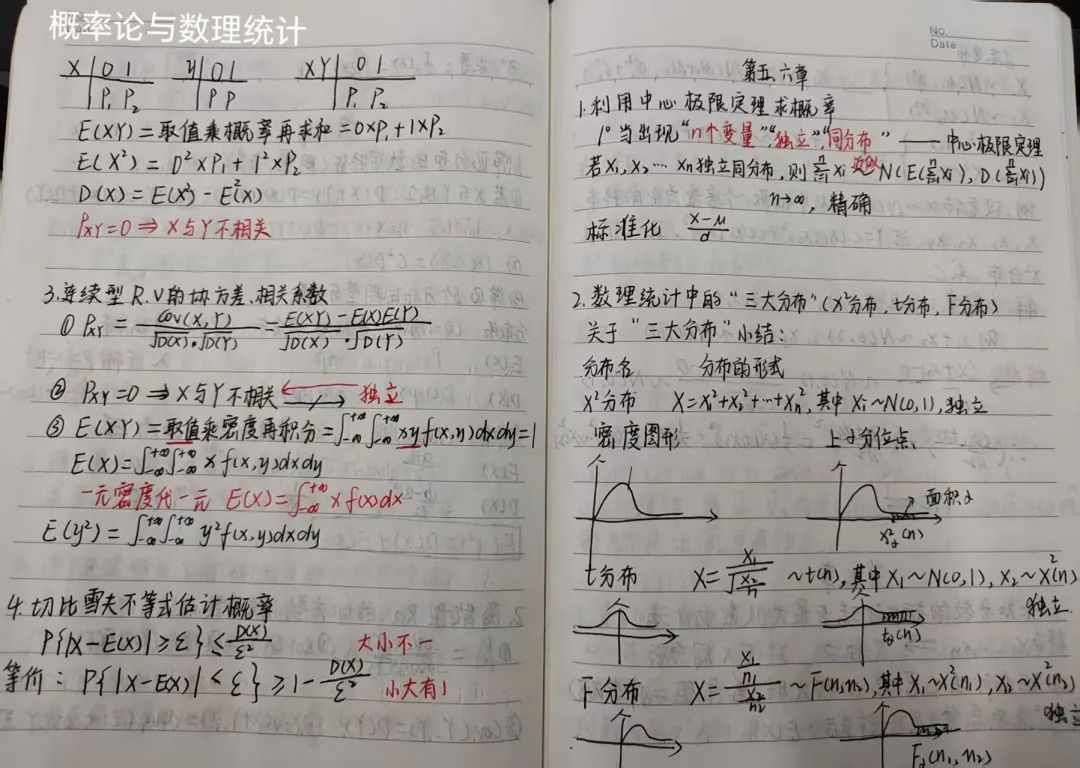 概率论与数理统计
X | 0 1    y | 0 1    XY | 0 1
P₁ P₂    P P    P₁ P₂
E(XY)=取值乘概率再求和=0×P₁+1×P₂
E(X²)=0²×P₁+1²×P₂
D(X)=E(X²)-E²(X)
ρxy=0⇒X与Y不相关
3.连续型R.V的协方差、相关系数
① ρxy=Cov(X,Y)/√D(X)·√D(Y)=E(XY)-E(X)E(Y)/√D(X)·√D(Y)
② ρxy=0⇒X与Y不相关 ⟵ 独立
③ E(XY)=取值乘密度再积分=∫₋∞⁺∞∫₋∞⁺∞xyf(x,y)dxdy=1
E(X)=∫₋∞⁺∞∫₋∞⁺∞xf(x,y)dxdy
一元密度代一元 E(X)=∫₋∞⁺∞xf(x)dx
E(y²)=∫₋∞⁺∞∫₋∞⁺∞y²f(x,y)dxdy
4.切比雪夫不等式估计概率
P{|X-E(X)|≥ε}≤D(X)/ε² 大小不一
等价:P{|X-E(X)|<ε}≥1-D(X)/ε² 小大有1
No.
Date
第五、六章
1.利用中心极限定理求概率
1°当出现"n个变量""独立""同分布" ⟵ 中心极限定理
若X₁,X₂…Xn独立同分布,则∑Xi 近似 N(E(∑Xi),D(∑Xi))
n→∞,精确
标准化 X-μ/σ
2.数理统计中的"三大分布"(X²分布,t分布,F分布)
关于"三大分布"小结:
分布名 分布的形式
X²分布 X=X₁²+X₂²+…+Xn²,其中Xi~N(0,1),独立
密度图形 上α分位点
面积α
X²α(n)
t分布 X=X₁/√X₂/n ~t(n),其中X₁~N(0,1),X₂~X²(n)
独立
tα(n)
F分布 X=X₁/n₁/X₂/n₂ ~F(n₁,n₂),其中X₁~X²(n₁),X₂~X²(n₂)
独立
Fα(n₁,n₂)